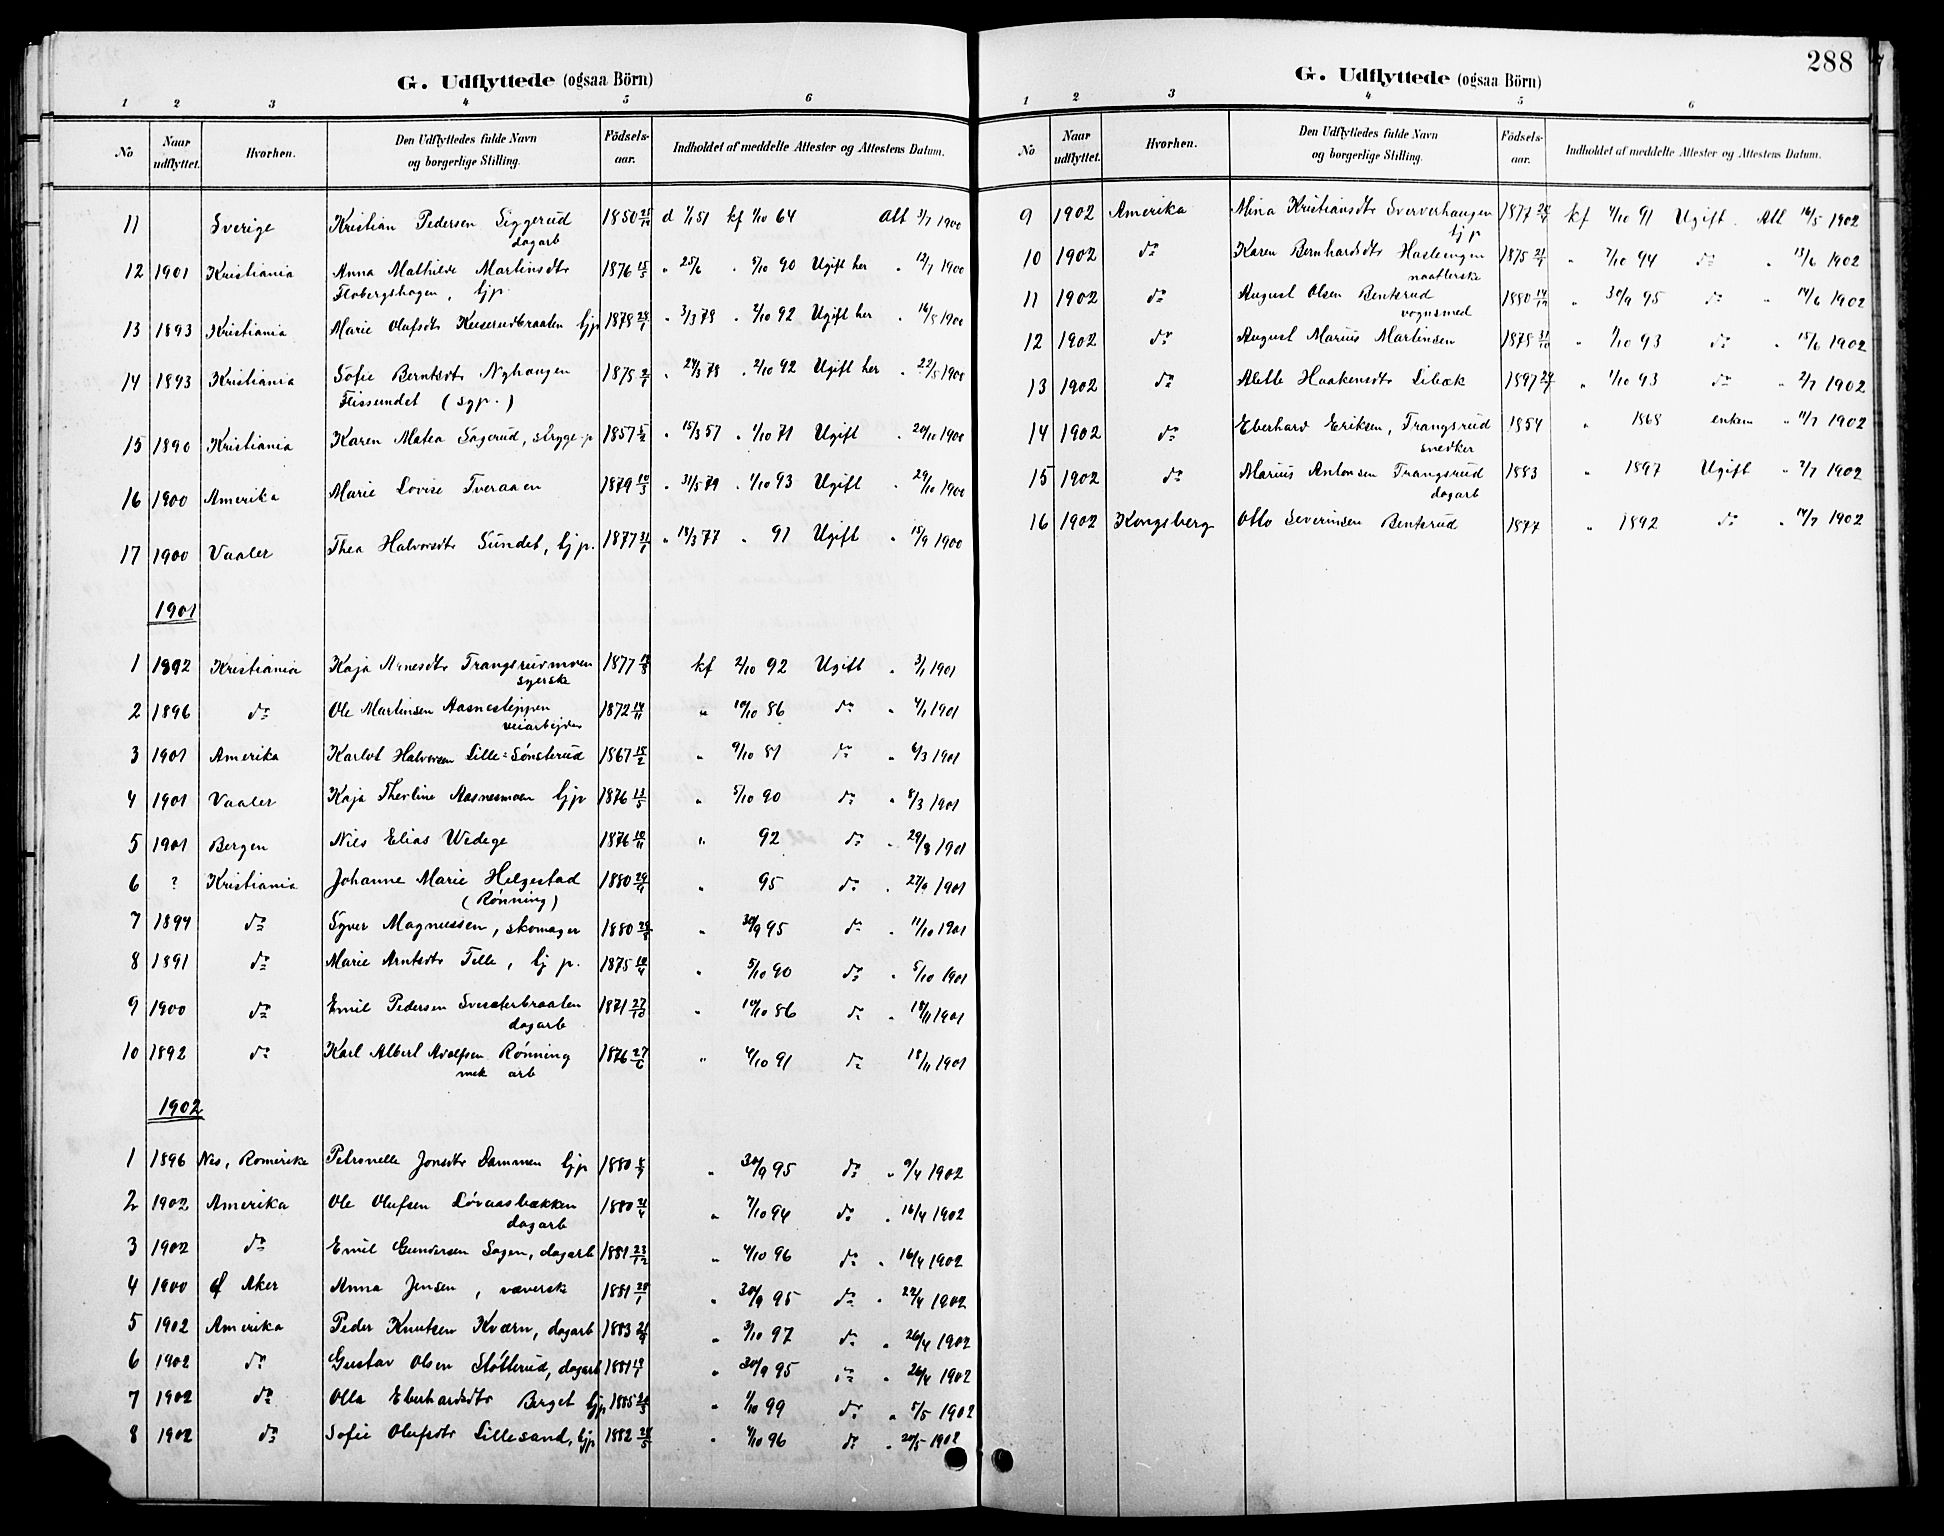 288
G. Udflyttede (ogsaa Börn)
1 2 3 4 5 6
No Naar udflyttet. Hvorhen. Den Udflyttedes fulde Navn og borgerlige Stilling. Födsels-aar. Indholdet af meddelte Attester og Attestens Datum.
11 Sverige Kristian Pedersen Siggerud 1850 d 7/1 51 kf 1/10 64 Att 3/7 1900
dagarb
12 1901 Kristiania Anna Mathilde Martinsdtr 1876 15/5 " 25/6 " 5/10 90 Ugift her " 12/7 1900
Flobergshagen, tjp.
13 1893 Kristiania Marie Olufsdtr Keiserudbraaten tjp 1878 " 3/3 78 " 2/10 92 Ugift her " 16/8 1900
14 1893 Kristiania Sofie Berntsdtr Nyhaugen 1878 " 24/3 78 " 2/10 92 Ugift her " 22/8 1900
Flissundet (syp.)
15 1890 Kristiania Karen Matea Sagerud, stryge-p 1857 5/2 " 15/3 57 " 1/10 71 Ugift " 20/10 1900
16 1900 Amerika Marie Lovise Tveraaen 1879 10/3 " 31/5 79 " 1/10 93 Ugift " 29/10 1900
17 1900 Vaaler Thea Halvorsdtr Sundet, tjp. 1877 31/1 " 18/3 77 " 91 Ugift " 15/9 1900
1901
1 1892 Kristiania Kaja Arnesdtr Trangsrudmoen 1877 kf 2/10 92 Ugift " 3/1 1901
syerske
2 1896 do Ole Martinsen Aasnesteppen 1872 14/11 " 10/10 86 do " 4/1 1901
veiarbejder
3 1901 Amerika Karlot Halvorsen Lille-Sønsterud 1867 15/2 " 9/10 81 do " 6/3 1901
4 1901 Vaaler Kaja Thorline Aasnesmoen tjp 1876 13/5 " 5/10 90 do " 8/3 1901
5 1901 Bergen Nils Elias Wedege 1876 10/11 " 92 do " 29/8 1901
6 ? Kristiania Johanne Marie Helgestad 1880 " 95 do " 27/9 1901
(Rønning)
7 1894 do Syver Magnussen, skomager 1880 " 30/9 95 do " 11/10 1901
8 1891 do Marie Arntsdtr Telle, tj p. 1875 10/4 " 5/10 90 do " 5/10 1901
9 1900 do Emil Pedersen Svesæterbraaten 1871 27/10 " 10/10 86 do " 18/11 1901
dagarb
10 1892 do Karl Albert Adolfsen Rønning 1876 27/6 " 4/10 91 do " 18/11 1901
mek arb
1902
1 1896 Nes, Romerike Petronelle Jonsdtr Dammen tjp 1880 " 30/9 95 do " 9/4 1902
2 1902 Amerika Ole Olufsen Løvaasbækken 1880 21/4 " 7/10 94 do " 16/4 1902
dagarb
3 1902 do Emil Gundersen Sagen, dagarb 1881 23/12 " 4/10 96 do " 16/4 1902
4 1900 Ø Aker Anna Jensen, væverske 1881 28/1 " 30/9 95 do " 22/4 1902
5 1902 Amerika Peder Knutsen Kværn, dagarb 1883 21/9 " 3/10 97 do " 26/4 1902
6 1902 do Gustav Olsen Støtterud, dagarb 1881 " 30/9 95 do " 26/4 1902
7 1902 do Olla Eberhardsdtr Berget tjp 1885 " 1/10 99 do " 5/5 1902
8 1902 do Sofie Olufsdtr Lillesand, tjp 1882 28/5 " 4/10 96 do " 20/5 1902
G. Udflyttede (ogsaa Börn)
1 2 3 4 5 6
No Naar udflyttet. Hvorhen. Den Udflyttedes fulde Navn og borgerlige Stilling. Födsels-aar. Indholdet af meddelte Attester og Attestens Datum.
9 1902 Amerika Mina Kristiansdtr Sververhaugen 1877 kf 4/10 91 Ugift. Att 16/5 1902
tjp
10 1902 do Karen Bernhardsdtr Hasleengen 1875 " 7/10 94 do " 13/6 1902
naatlerske
11 1902 do August Olsen Bentsrud 1880 " 30/9 95 do " 14/6 1902
vognsmed
12 1902 do August Marius Martinsen 1878 31/10 " 1/10 93 do " 15/6 1902
13 1902 do Alette Haakensdtr Libæk 1897 " 1/10 93 do " 2/7 1902
14 1902 do Eberhard Eriksen, Trangsrud 1854 " 1868 enkem " 11/7 1902
snedker
15 1902 do Marius Antonsen Trangsrud 1883 " 1897 Ugift " 2/7 1902
dagarb
16 1902 Kongsberg Otto Severinsen Bentsrud 1877 " 1892 do " 14/7 1902